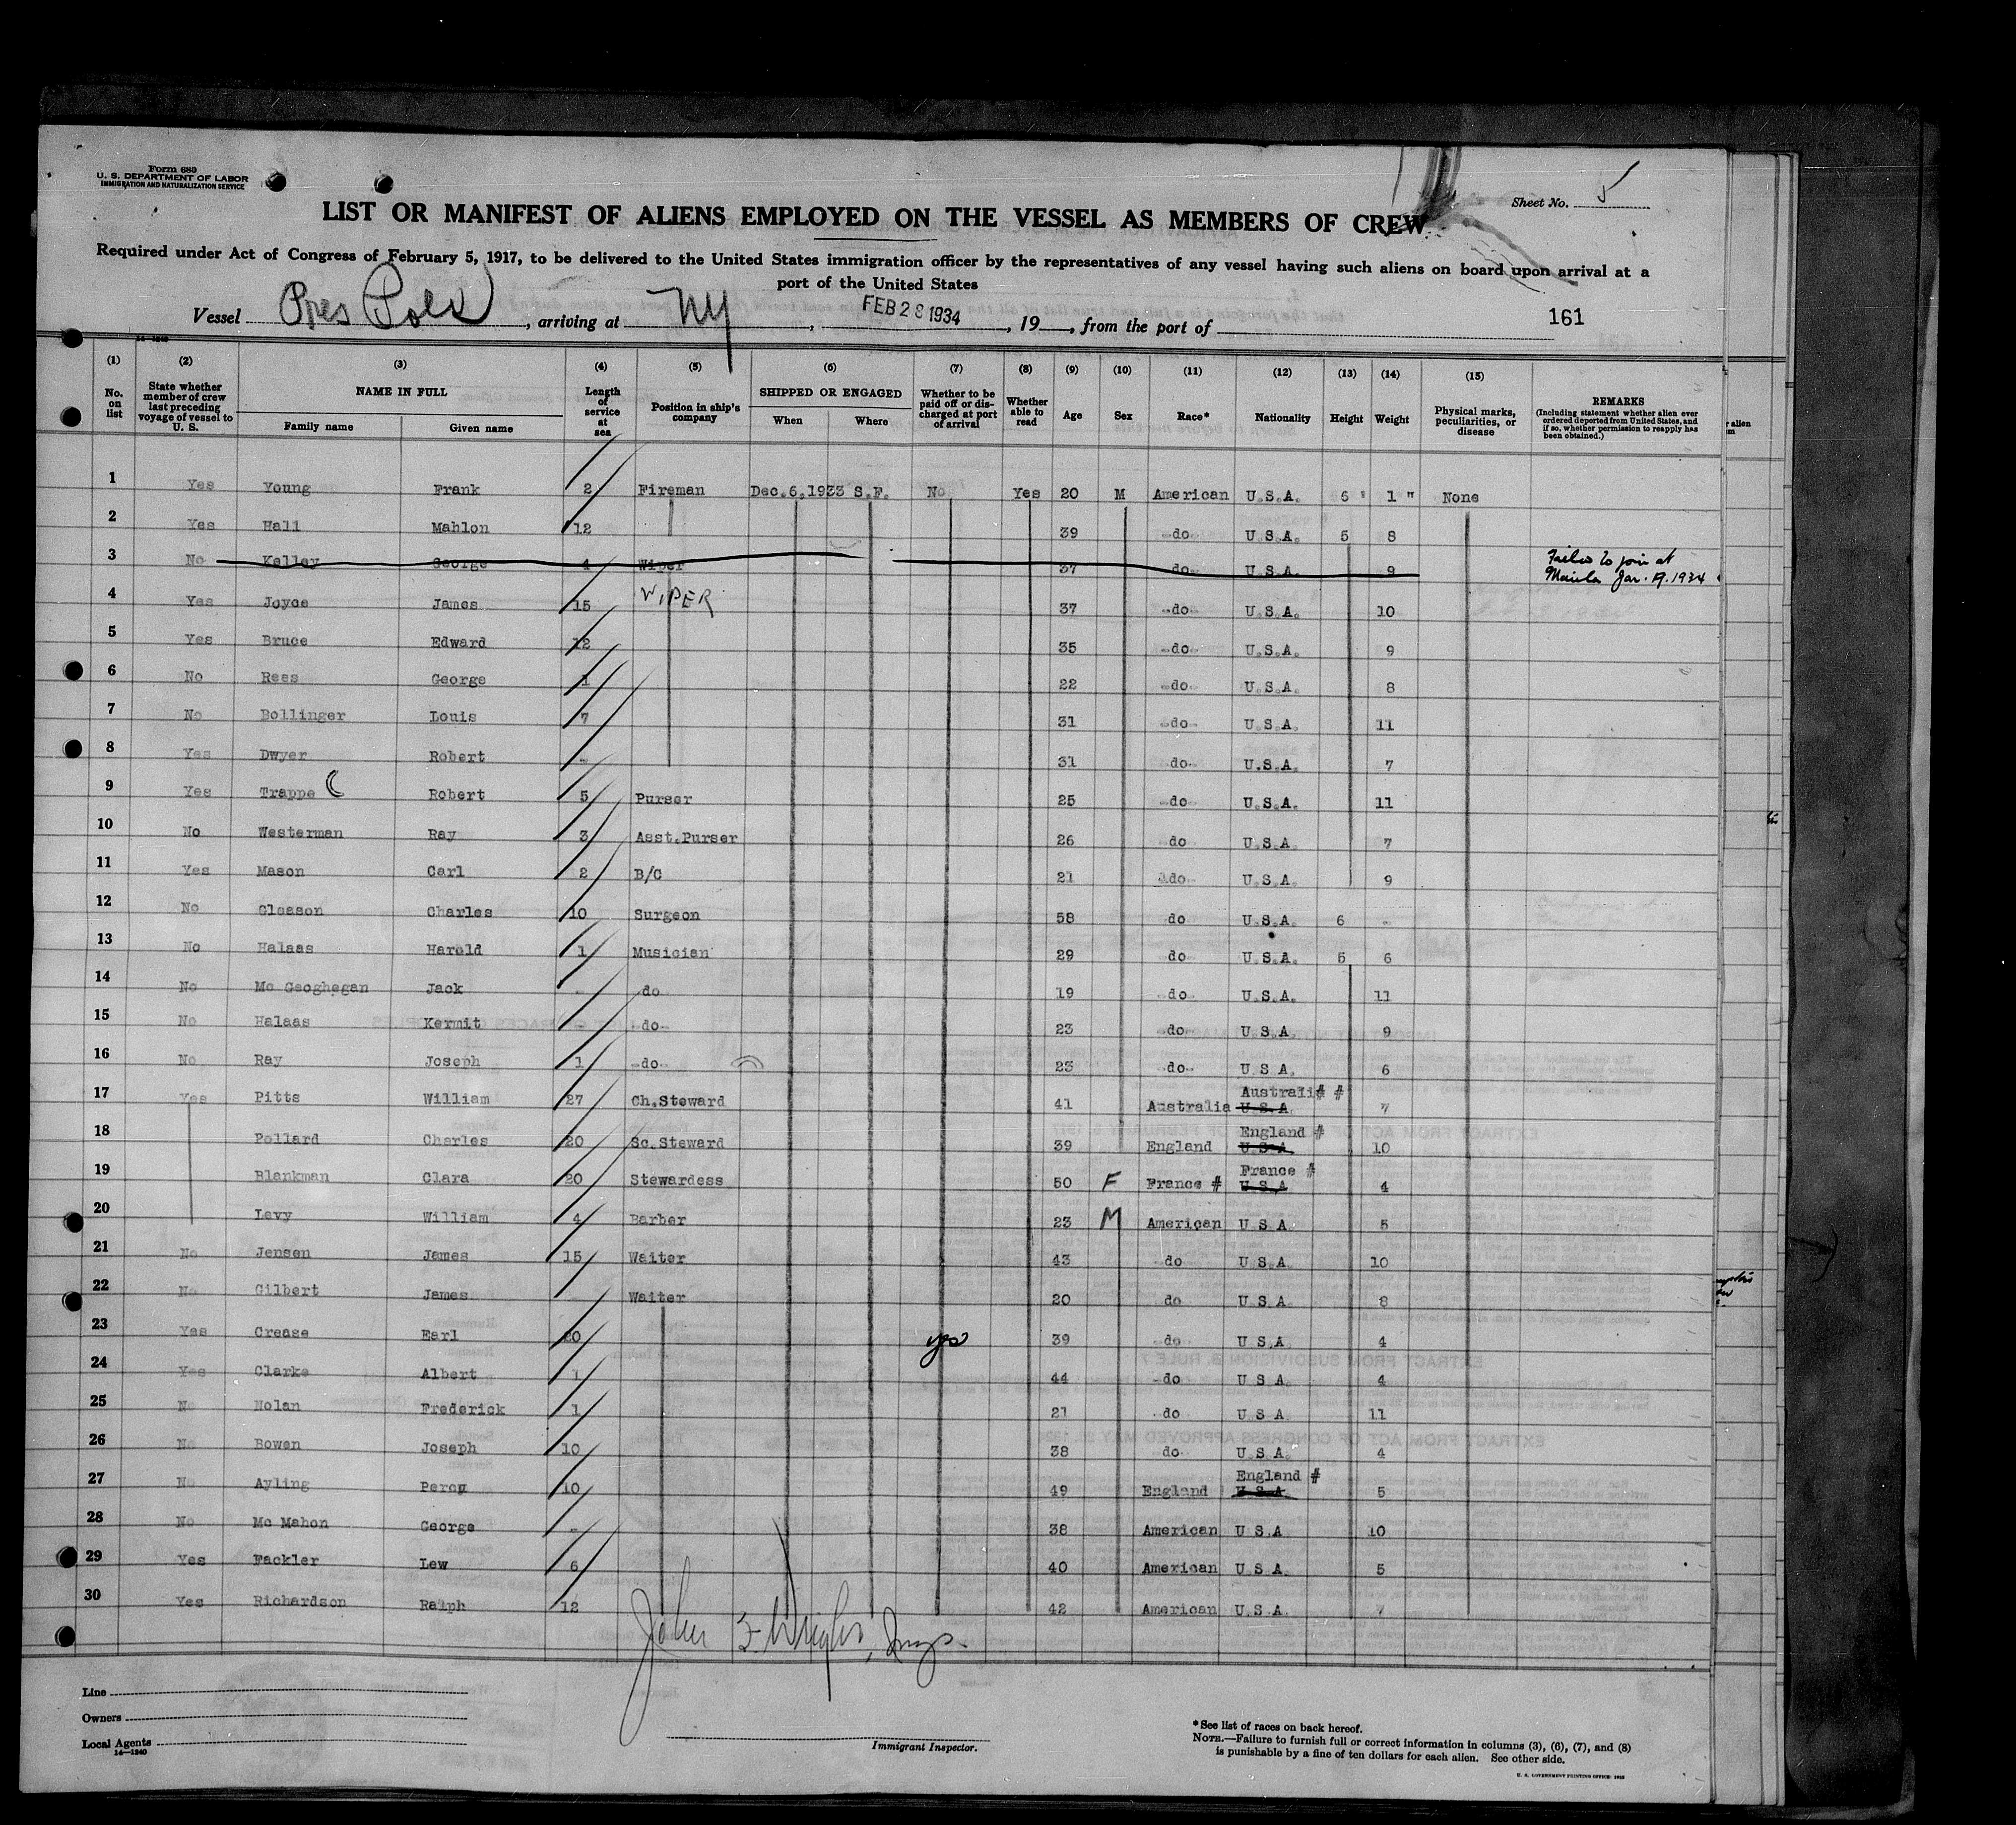 Form 680
U. S. DEPARTMENT OF LABOR
IMMIGRATION AND NATURALIZATION SERVICE
Sheet No. 5
LIST OR MANIFEST OF ALIENS EMPLOYED ON THE VESSEL AS MEMBERS OF CREW
Required under Act of Congress of February 5, 1917, to be delivered to the United States immigration officer by the representatives of any vessel having such aliens on board upon arrival at a
port of the United States
Vessel Pres Polk, arriving at NY, FEB 28 1934, 19__, from the port of 161
(1) (2) (3) (4) (5) (6) (7) (8) (9) (10) (11) (12) (13) (14) (15)
No. on list
State whether member of crew last preceding voyage of vessel to U. S.
NAME IN FULL
Family name Given name
Length of service at sea
Position in ship's company
SHIPPED OR ENGAGED
When Where
Whether to be paid off or discharged at port of arrival
Whether able to read
Age Sex Race* Nationality Height Weight
Physical marks, peculiarities, or disease
REMARKS
(Including statement whether alien ever ordered deported from United States, and if so, whether permission to reapply has been obtained.)
1 Yes Young Frank 2 Fireman Dec.6,1933 S.F. No Yes 20 M American U.S.A. 6 ' 1 " None
2 Yes Hall Mahlon 12 39 do U.S.A. 5 8
3 No Kelley George 4 Wiper 37 do U.S.A. 9 Failed to join at Manila Jan. 19.1934
4 Yes Joyce James 15 WIPER 37 do U.S.A. 10
5 Yes Bruce Edward 12 35 do U.S.A. 9
6 No Rees George 1 22 do U.S.A. 8
7 No Bollinger Louis 7 31 do U.S.A. 11
8 Yes Dwyer Robert - 31 do U.S.A. 7
9 Yes Trappe Robert 5 Purser 25 do U.S.A. 11
10 No Westerman Ray 3 Asst.Purser 26 do U.S.A. 7
11 Yes Mason Carl 2 B/C 21 do U.S.A. 9
12 No Gleason Charles 10 Surgeon 58 do U.S.A. 6 -
13 No Halaas Harold 1 Musician 29 do U.S.A. 5 6
14 No Mc Geoghegan Jack - do 19 do U.S.A. 11
15 No Halaas Kermit - do 23 do U.S.A. 9
16 No Ray Joseph 1 do 23 do U.S.A. 6
17 Yes Pitts William 27 Ch.Steward 41 Australia Australi# # U.S.A. 7
18 Pollard Charles 20 Sc.Steward 39 England England # U.S.A. 10
19 Blankman Clara 20 Stewardess 50 F France # France # U.S.A. 4
20 Levy William 4 Barber 23 M American U.S.A. 5
21 No Jensen James 15 Waiter 43 do U.S.A. 10
22 No Gilbert James Waiter 20 do U.S.A. 8
23 Yes Crease Earl 20 yes 39 do U.S.A. 4
24 Yes Clarke Albert 1 44 do U.S.A. 4
25 No Nolan Frederick 1 21 do U.S.A. 11
26 No Bowen Joseph 10 38 do U.S.A. 4
27 No Ayling Percy 10 49 England England # U.S.A. 5
28 No Mc Mahon George - 38 American U.S.A. 10
29 Yes Fackler Lew 6 40 American U.S.A. 5
30 Yes Richardson Ralph 12 42 American U.S.A. 7
John F. Wright, Insp.
Line
Owners
Local Agents
14—1240
Immigrant Inspector.
*See list of races on back hereof.
NOTE.—Failure to furnish full or correct information in columns (3), (6), (7), and (8)
is punishable by a fine of ten dollars for each alien. See other side.